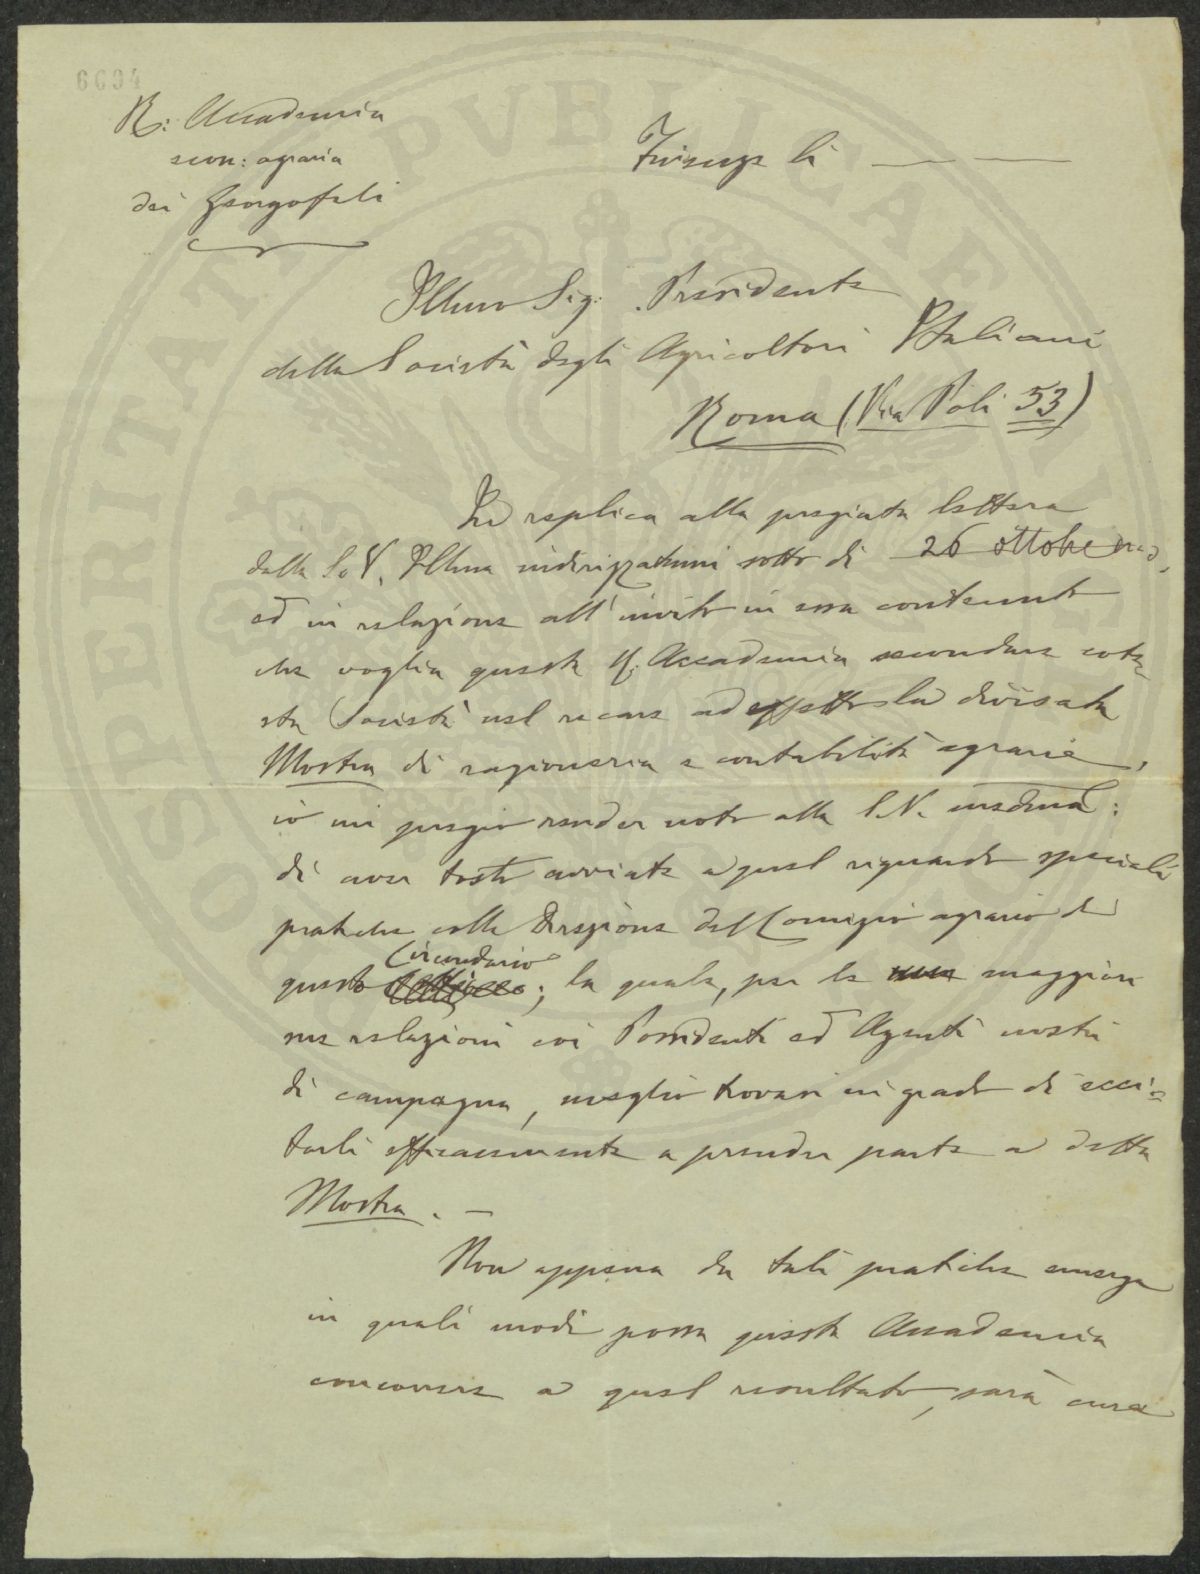 6694
R: Accademia
econ: agraria
dei Georgofili
Firenze li
Illmo Sig: Presidente
della Società degli Agricoltori Italiani
Roma (Via Poli 53)
In replica alla pregiata lettera
dalla S. V. Illma indirizzatami sotto dì 26 ottobre
ed in relazione all'invito in essa contenuto
che voglia questa R. Accademia secondare cote
sta Società nel recare ad effetto la divisata
Mostra di ragioneria e contabilità agraria,
io mi pregio render noto alla S. V. medma:
di aver tosto avviate a quel riguardo speciali
pratiche colla Direzione del Comizio agrario di
Circondario
questo ; la quale, per le maggiori
sue relazioni coi Possidenti ed Agenti nostri
di campagna, meglio trovasi in grado di ecci=
tarli efficacemente a prender parte a detta
Mostra. —
Non appena da tali pratiche emerga
in quali modi possa questa Accademia
concorrere a quel resultato, sarà cura
PROSPERITATI PVBLICAE